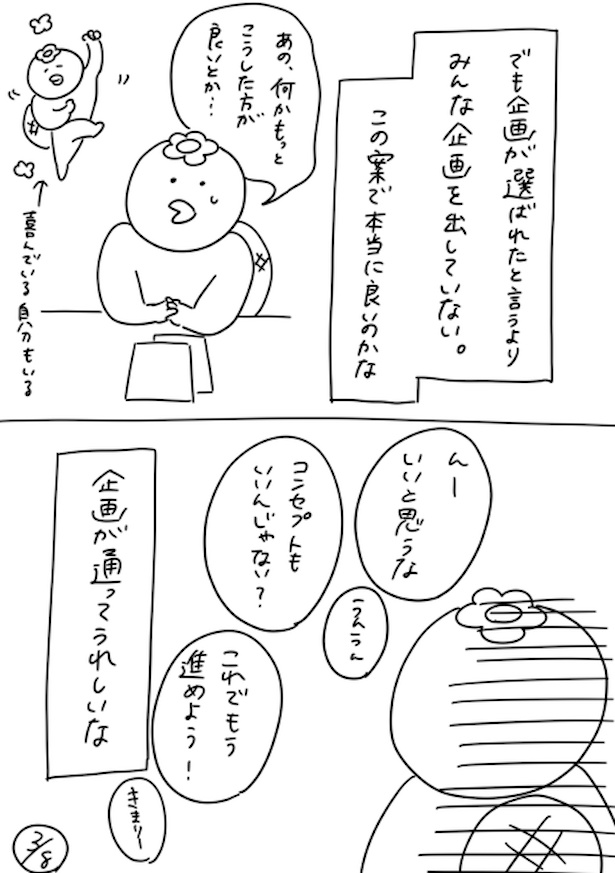 でも企画が選ばれたと言うより
みんな企画を出していない。
この案で本当に良いのかな
あの、何かもっと
こうした方が
良いとか…
喜んでいる自分もいる
んー
いいと思うな
コンセプトも
いいんじゃない？
うんうん
これでもう
進めよう！
きまりー
企画が通ってうれしいな
3/8